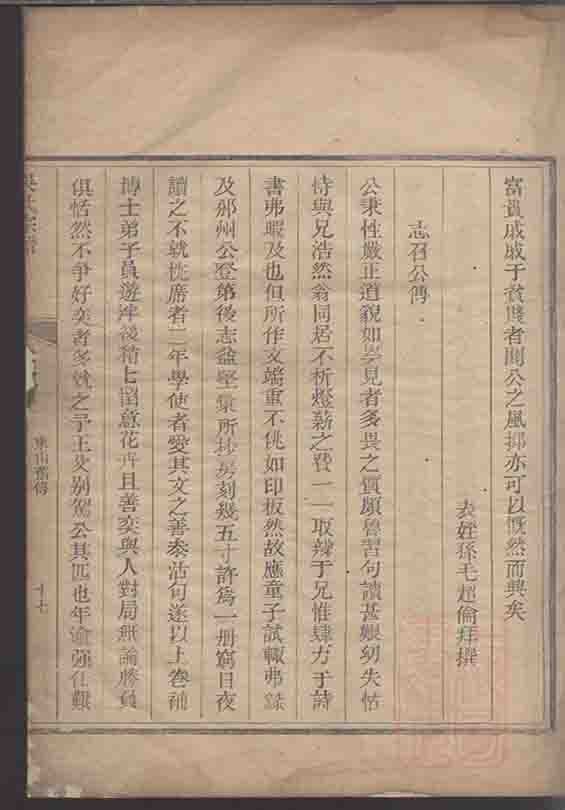 富貴戚戚于貧賤者聞公之風抑亦可以慨然而興矣
表姪孫毛超倫拜撰
志召公傳
公秉性嚴正道貌如學見者多畏之質頗魯習句讀甚艱幼失怙
恃與兄浩然翁同居不析燈薪之費一一取辦于兄惟肆力于詩
書弗暇及也但所作文端重不佻如印板然故應童子試輒弗錄
及邠州公登第後志益堅彙所抄房刻幾五寸許爲一册窮日夜
讀之不就枕席者二年學使者愛其文之善参活句遂以上卷補
博士弟子員遊泮後稍七留意花卉且善奕與人對局無論勝負
俱恬然不爭好奕者多就之予王父別駕公其匹也年逾强仕艱
吳氏宗譜
東山舊傳
十七